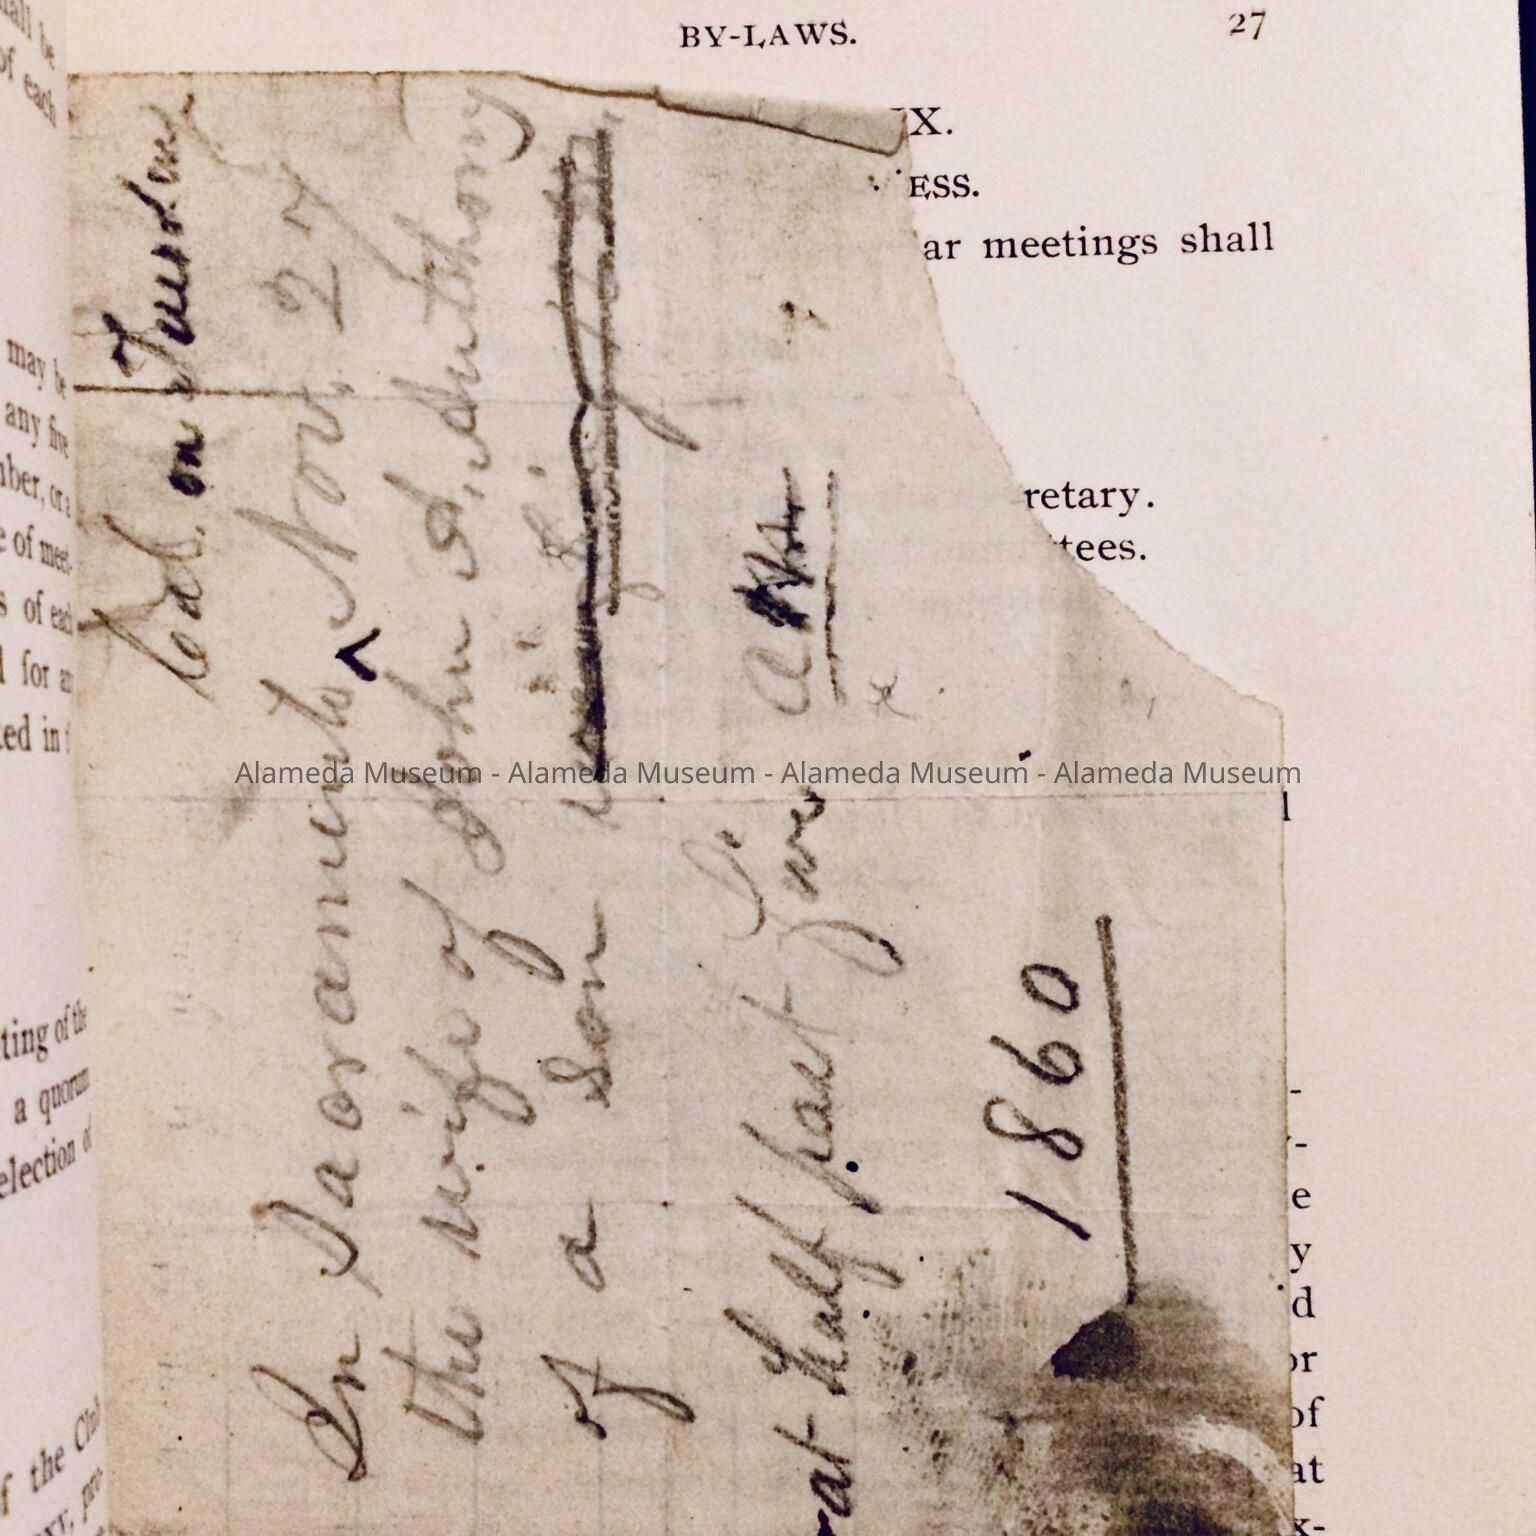 BY-LAWS. 27
X.
ESS.
ar meetings shall
retary.
tees.
Cal. on Tuesday
In Sacramento ^ Nov. 27
the wife of John A. Anthony
of a Son
at half past five
1860
Alameda Museum - Alameda Museum - Alameda Museum - Alameda Museum
all be
of each
may be
any five
mber, or a
e of meet-
s of each
for an
ted in
ting of the
a quorum
election of
of the Club
l
-
-
e
y
d
or
of
at
x-